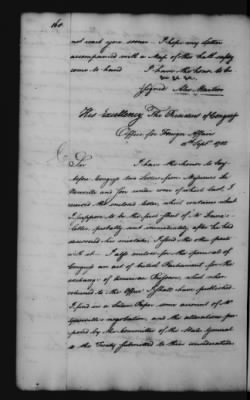 160
not reach you sooner. I hope my letter
accompanied with a Map of this

come to hand I have the honor to be
Signed
His Excellency The President of Congress
Office for Foreign Affairs
Sept. 1782
Sir I have the honor to lay
before Congress two Letters from
and one under cover of which last, I
received the enclosed letter, which contains what
I suppose to be the first effect of Mr Deane's
Letter probably sent immediately after he had
discovered his mistake, I send the other pack
with it. I also enclose for the perusal of
Congress an act of British Parliament for the
exchange of American Prisoners, which when
returned to the Office I shall have published.
I find in a Leiden Paper some account of Mr
negotiation, and the alterations pro
posed by the Committee of the States General
to the Treaty submitted to their consideration